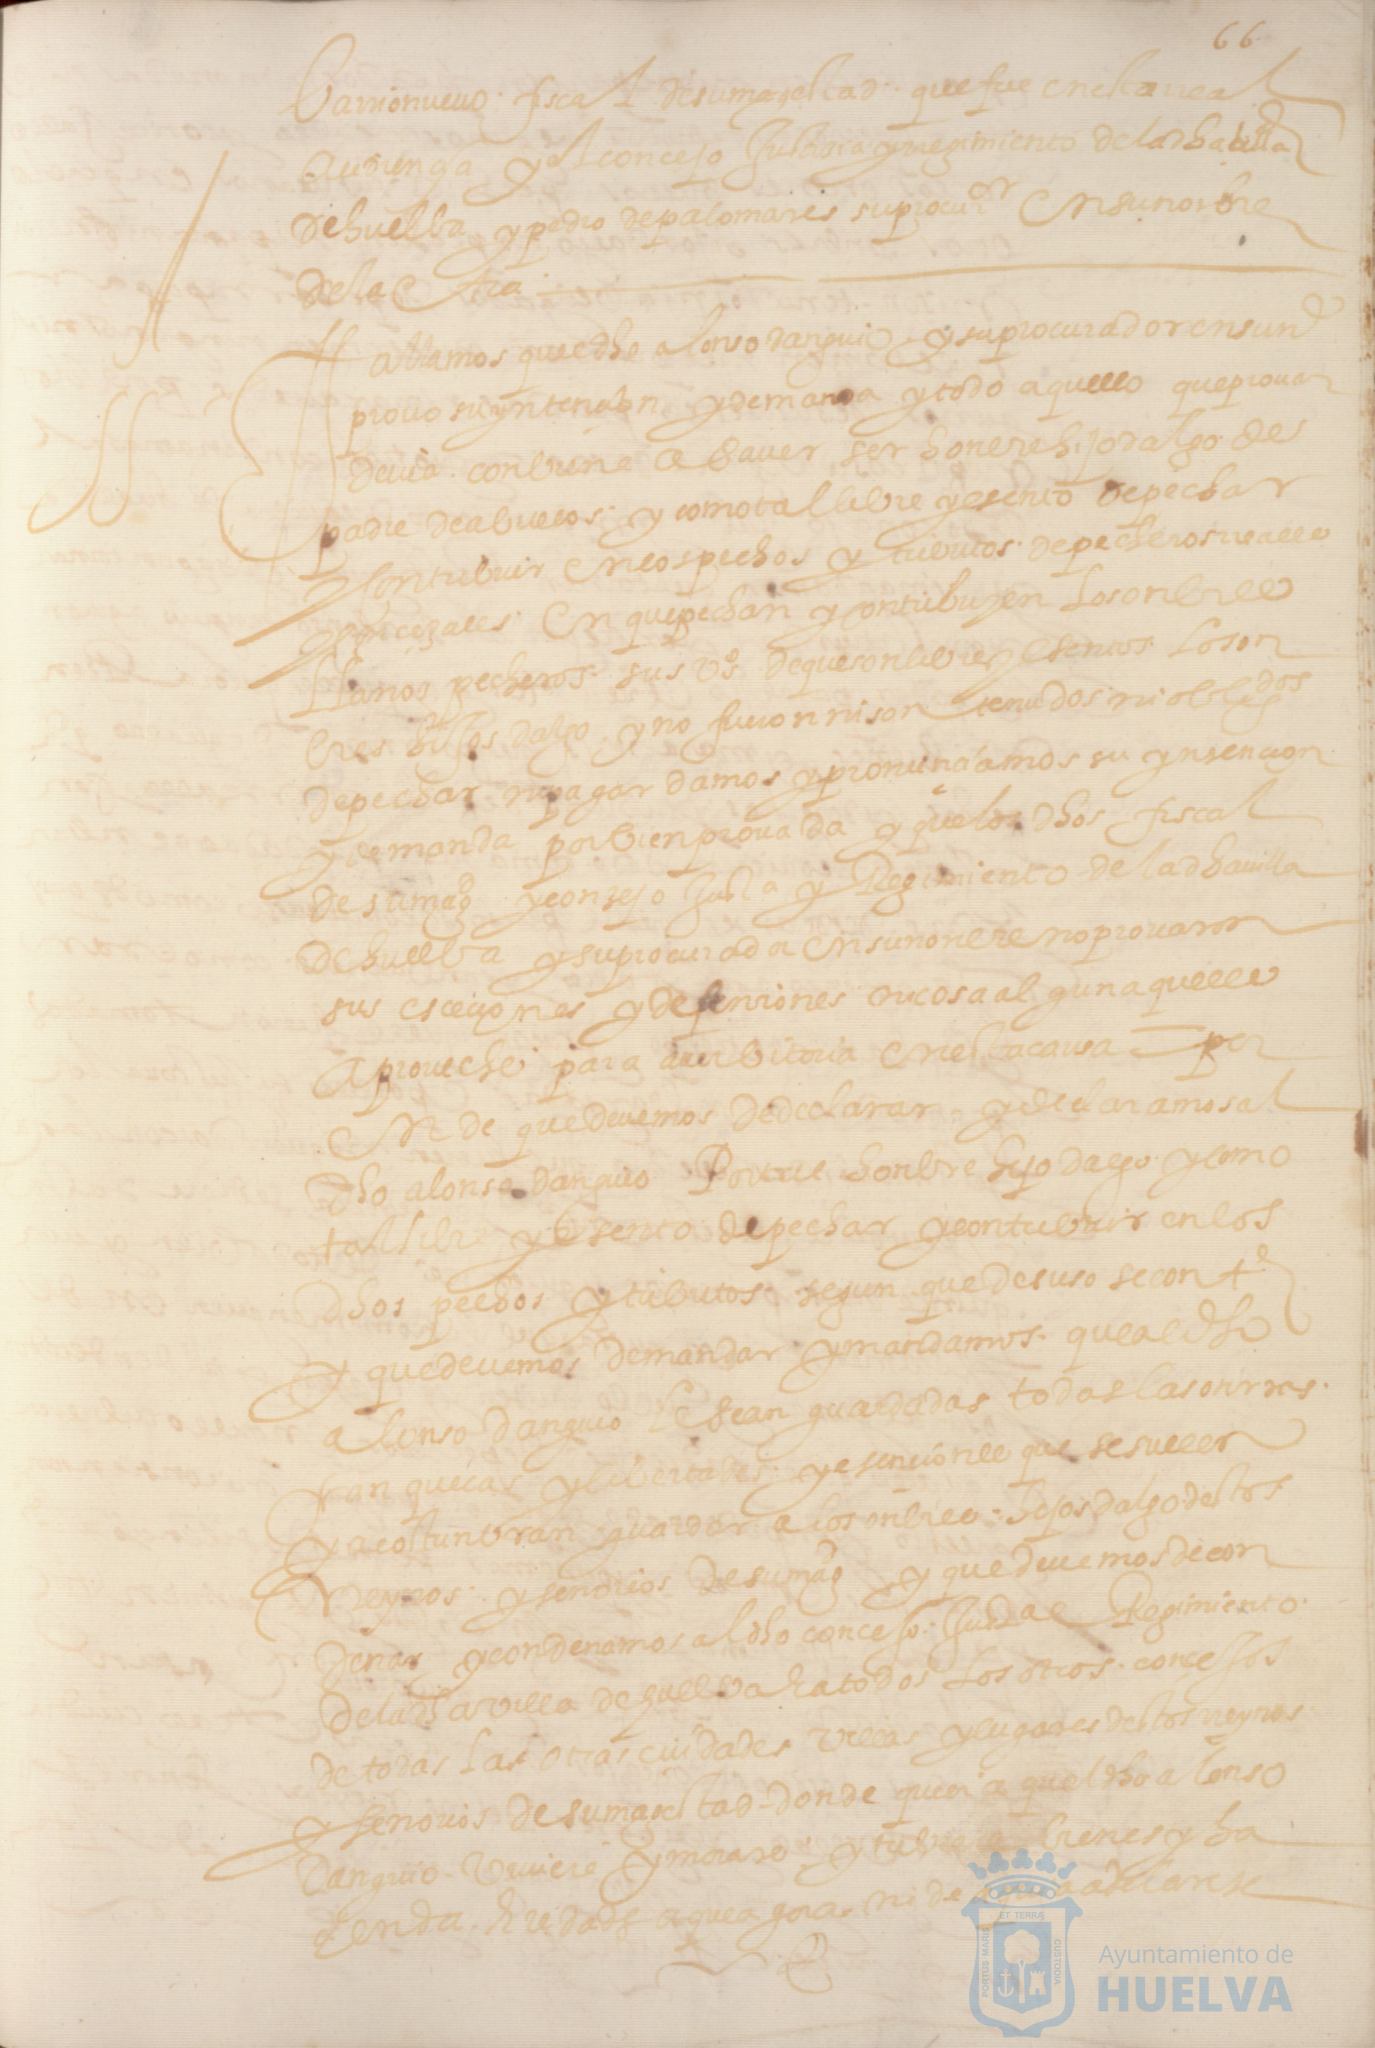 66
barrionuevo fiscal desumagestad que fue enestareal
audiençia y el concejo Justicia y rregimiento deladhavilla
de huelba y pedro depalomares suprocuror En sunonbre
dela Otra
Fallamos queel dho alonso danguio y suprocurador ensunе
provo suyntençion ydemanda ytodo aquello queprovar
devia conbiene a saver ser honbre hijodalgo de
padre deabuelos y comotal libre yesento depechar
y Contribuir En los pechos y tributos depecheros rreales
y conçejales En quepechan y contribuyen Losonbres
Llanos pecheros sus vos dequeson libres y Esentos Loson
bres hijos dalgo y no fueron ni son tenudos ni obligdos
depechar nipagar damos ypronunçiamos su yntencion
y demanda por bien provada y quelos dhos fiscal
de sumagd yconsejo Justa y Regimiento deladhavilla
dehuelba ysuprocurador ensunonbre noprovaron
sus eseçiones ydefensiones nicosa alguna queles
aproveche para aver bitoria En estacausa por
Ende que devemos dedeclarar ydeclaramos al
dho alonso danguio Por tal honbre hijo dalgo y como
tal libre yEsento depechar ycontribuir en los
dhos pechos ytributos segun que desuso secontе
y que devemos demandar ymandamos queal dho
alonso danguio le sean guardadas todas lasonrras
franqueças ylibertades yesenciones que sesuelen
y acostunbran guardar alos onbres hijos dalgo destos
Rreynos y señorios desumagd y quedevemos decon
denar ycondenamos al dho concejo Justa e Regimiento
deladha villa de huelva ha todos los otros concejos
de todas las otras ciudades villas ylugares destos rreynos
y señorios de sumagestad donde quiera queel dho alonso
danguio viviere ymorare y tubiere bienes y ha
zienda heredade aqueagora ni de
Ayuntamiento de
HUELVA
PORTUS MARIS ET TERRÆ CUSTODIA